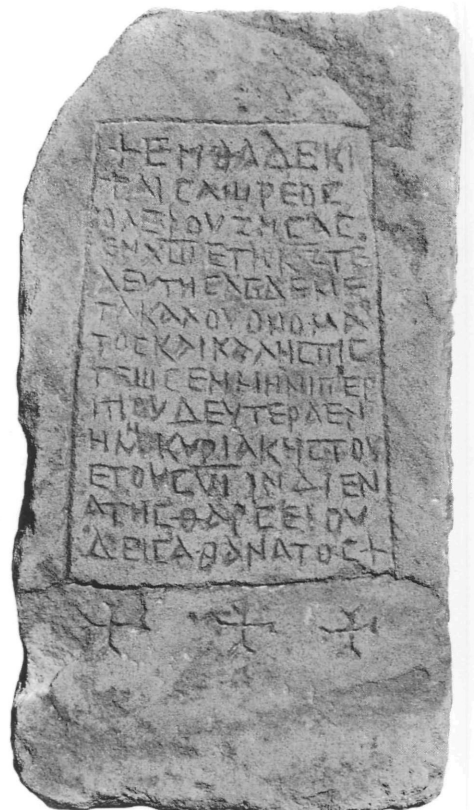 +ΕΝΘΑΔΕΚΙ
ΖΗCΑC
ΕΤΗΚΕΤΕ
ΛΕΥΤΗCΑCΔΕΜΕ
ΤΑΚΑΛΟΥΟΝΟΜΑ
ΤΟCΚΑΙΚΑΛΗCΠΙC
ΤΕΩCΕΝΜΗΝΙΠΕΡ
ΙΤΙΟΥΔΕΥΤΕΡΑΕΝ
ΗΜΚΥΡΙΑΚΗCΤΟΥ
ΕΤΟΥC ΙΝΔΙΕΝ
ΑΤΗCΘΑΡCΕΙΟΥ
ΔΕΙCΑΘΑΝΑΤΟC+